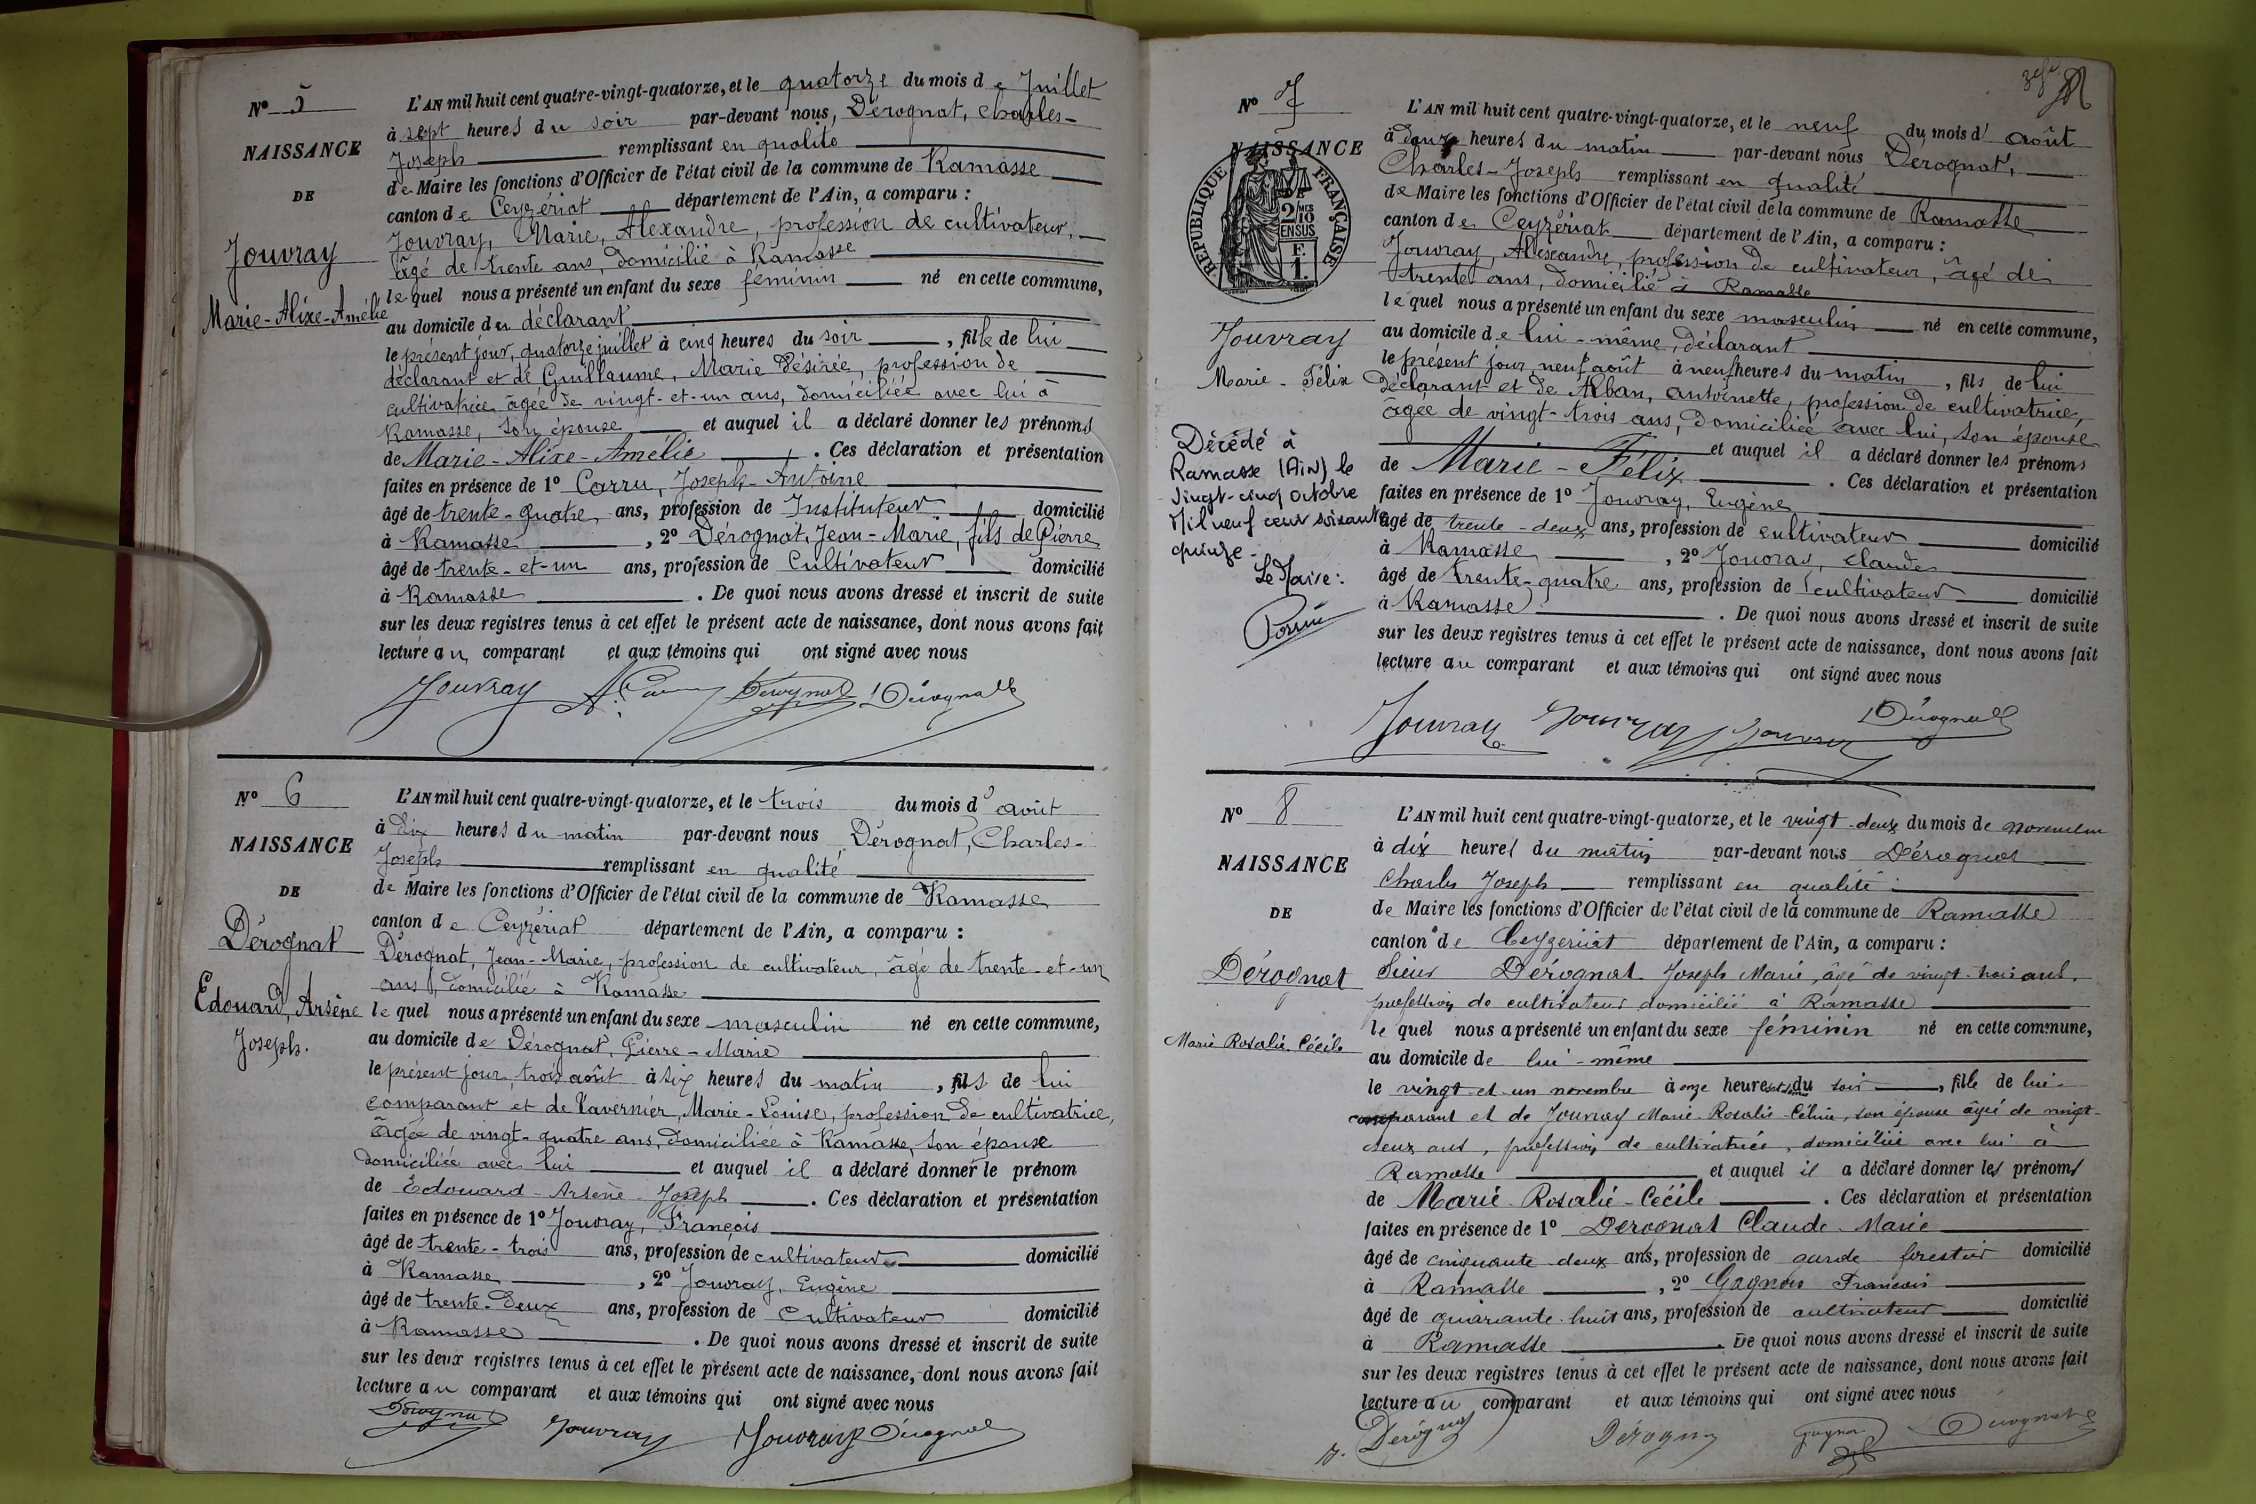 N° 5
NAISSANCE
DE
Jouvray
Marie-Alixe-Amélie
L'AN mil huit cent quatre-vingt-quatorze, et le quatorze du mois de Juillet
à sept heures du soir par-devant nous, Dérognat, Charles-
Joseph remplissant en qualité
de Maire les fonctions d'Officier de l'état civil de la commune de Ramasse
canton de Ceyzériat département de l'Ain, a comparu :
Jouvray, Marie, Alexandre, profession de cultivateur,
âgé de trente ans, domicilié à Ramasse
lequel nous a présenté un enfant du sexe féminin né en cette commune,
au domicile du déclarant
le présent jour, quatorze juillet à cinq heures du soir, fille de lui
déclarant et de Guillaume, Marie Désirée, profession de
cultivatrice âgée de vingt-et-un ans, domiciliée avec lui à
Ramasse, son épouse et auquel il a déclaré donner les prénoms
de Marie-Alixe-Amélie. Ces déclaration et présentation
faites en présence de 1° Carru, Joseph-Antoine
âgé de trente-quatre ans, profession de Instituteur domicilié
à Ramasse, 2° Dérognat, Jean-Marie, fils de Pierre
âgé de trente-et-un ans, profession de Cultivateur domicilié
à Ramasse. De quoi nous avons dressé et inscrit de suite
sur les deux registres tenus à cet effet le présent acte de naissance, dont nous avons fait
lecture au comparant et aux témoins qui ont signé avec nous
Jouvray Dérognat Dérognat
N° 6
NAISSANCE
DE
Dérognat
Edouard, Arsène
Joseph.
L'AN mil huit cent quatre-vingt-quatorze, et le trois du mois d'août
à dix heures du matin par-devant nous Dérognat, Charles-
Joseph remplissant en qualité
de Maire les fonctions d'Officier de l'état civil de la commune de Ramasse
canton de Ceyzériat département de l'Ain, a comparu :
Dérognat, Jean-Marie, profession de cultivateur, âgé de trente-et-un
ans, domicilié à Ramasse
lequel nous a présenté un enfant du sexe masculin né en cette commune,
au domicile de Dérognat, Pierre-Marie
le présent jour, trois août à six heures du matin, fils de lui
comparant et de Tavernier, Marie-Louise, profession de cultivatrice,
âgée de vingt-quatre ans, domiciliée à Ramasse, son épouse
domiciliée avec lui et auquel il a déclaré donner le prénom
de Edouard-Arsène-Joseph. Ces déclaration et présentation
faites en présence de 1° Jouvray, François
âgé de trente-trois ans, profession de cultivateur domicilié
à Ramasse, 2° Jouvray, Eugène
âgé de trente-deux ans, profession de Cultivateur domicilié
à Ramasse. De quoi nous avons dressé et inscrit de suite
sur les deux registres tenus à cet effet le présent acte de naissance, dont nous avons fait
lecture au comparant et aux témoins qui ont signé avec nous
Dérognat Jouvray Jouvray Dérognat
N° 7
NAISSANCE
REPUBLIQUE FRANÇAISE
2/10 MES
EN SUS
1 F.
Jouvray
Marie-Félix
Décédé à
Ramasse (Ain) le
vingt-cinq octobre
mil neuf cent soixante
quinze-
Le Maire :
L'AN mil huit cent quatre-vingt-quatorze, et le neuf du mois d'août
à heures du matin par-devant nous Dérognat,
Charles-Joseph remplissant en qualité
de Maire les fonctions d'Officier de l'état civil de la commune de Ramasse
canton de Ceyzériat département de l'Ain, a comparu :
Jouvray, Alexandre, profession de cultivateur, âgé de
trente ans, domicilié à Ramasse
lequel nous a présenté un enfant du sexe masculin né en cette commune,
au domicile de lui-même, déclarant
le présent jour neuf août à neuf heures du matin, fils de lui
déclarant et de Alban, Antoinette, profession de cultivatrice,
âgée de vingt-trois ans, domiciliée avec lui, son épouse
et auquel il a déclaré donner les prénoms
de Marie-Félix. Ces déclaration et présentation
faites en présence de 1° Jouvray, Eugène
âgé de trente-deux ans, profession de cultivateur domicilié
à Ramasse, 2° Jouvray, Claude
âgé de trente-quatre ans, profession de cultivateur domicilié
à Ramasse. De quoi nous avons dressé et inscrit de suite
sur les deux registres tenus à cet effet le présent acte de naissance, dont nous avons fait
lecture au comparant et aux témoins qui ont signé avec nous
Jouvray Jouvray Jouvray Dérognat
N° 8
NAISSANCE
DE
Dérognat
Marie Rosalie Cécile
L'AN mil huit cent quatre-vingt-quatorze, et le vingt-deux du mois de novembre
à dix heures du matin par-devant nous Dérognat
Charles Joseph remplissant en qualité
de Maire les fonctions d'Officier de l'état civil de la commune de Ramasse
canton de Ceyzeriat département de l'Ain, a comparu :
Sieur Dérognat Joseph Marie, âgé de vingt-trois ans,
profession de cultivateur domicilié à Ramasse
lequel nous a présenté un enfant du sexe féminin né en cette commune,
au domicile de lui-même
le vingt et un novembre à onze heures du soir, fille de lui
comparant et de Jouvray Marie-Rosalie-Céline, son épouse âgée de vingt-
deux ans, profession de cultivatrice, domiciliée avec lui à
Ramasse et auquel il a déclaré donner les prénoms
de Marie-Rosalie-Cécile. Ces déclaration et présentation
faites en présence de 1° Dérognat Claude-Marie
âgé de cinquante deux ans, profession de garde forestier domicilié
à Ramasse, 2° Gagnon François
âgé de quarante-huit ans, profession de cultivateur domicilié
à Ramasse. De quoi nous avons dressé et inscrit de suite
sur les deux registres tenus à cet effet le présent acte de naissance, dont nous avons fait
lecture au comparant et aux témoins qui ont signé avec nous
Dérognat Dérognat Gagnon Dérognat